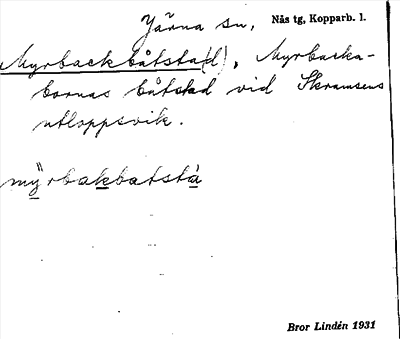 Järna sn, Nås tg, Kopparb. l.
Myrbackbåtsta(d), Myrbacka-
bornas båtstad vid Skramsens
utloppsvik.
mÿrbakbatstà
Bror Lindén 1931